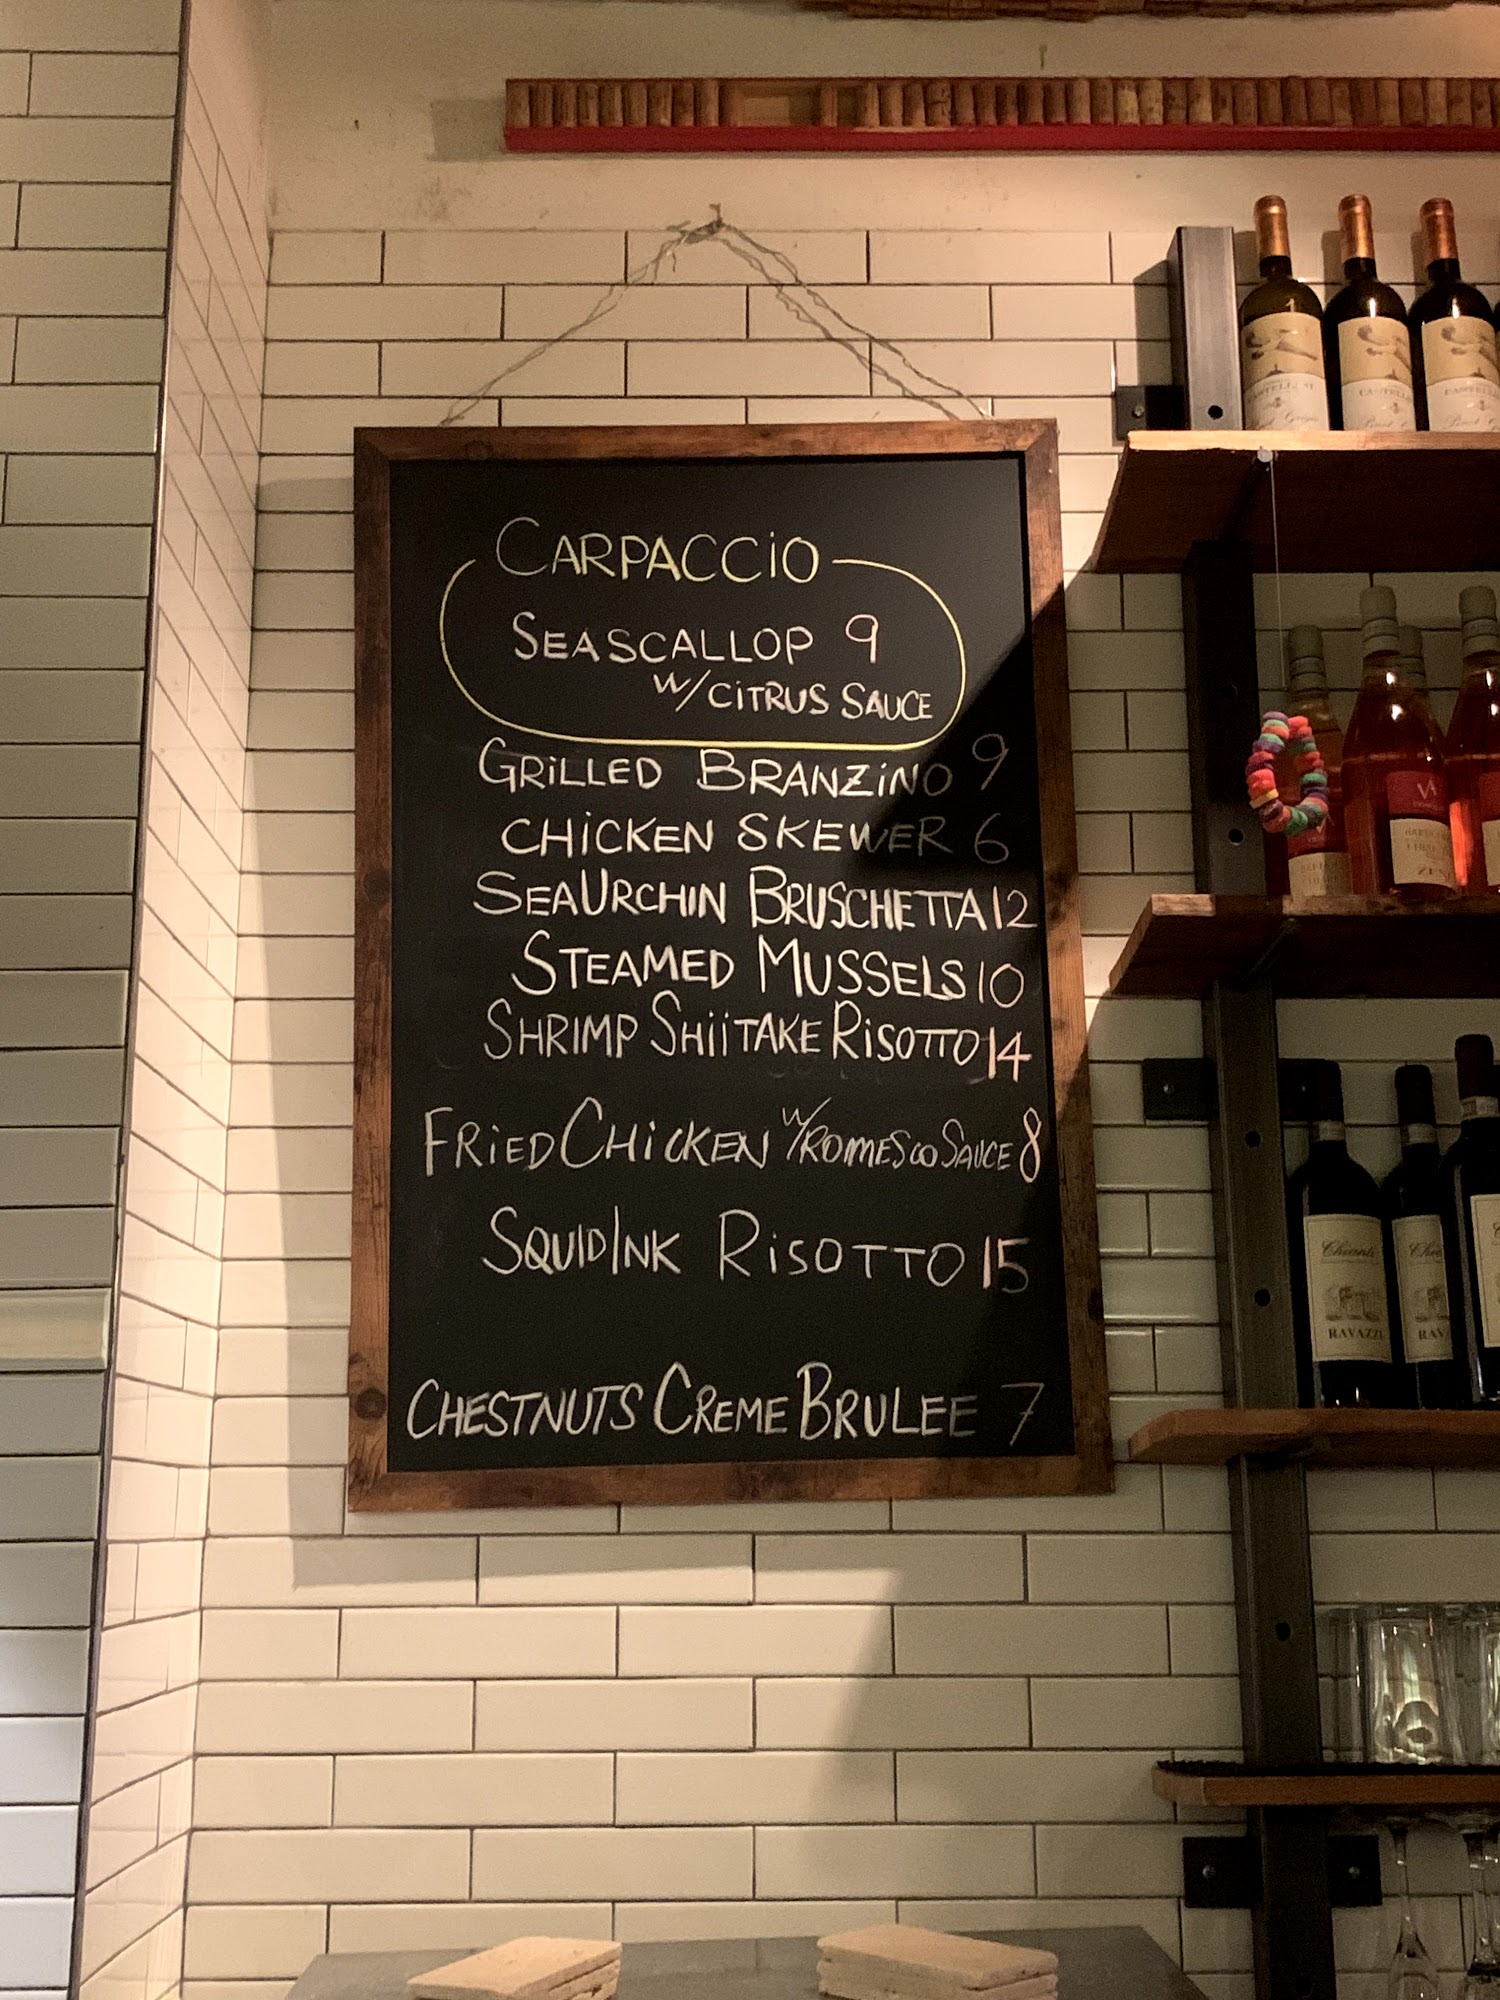 CARPACCiO
SEASCALLOP 9
W/CiTRUS SAUCE
GRiLLED BRANZiNO 9
CHiCKEN SKEWER 6
SEAURCHIN BRUSCHETTA 12
STEAMED MUSSELS 10
SHRIMP SHiiTAKE RiSOTTO 14
FRiED CHiCKEN W/ROMESCO SAUCE 8
SQUID INK RiSOTTO 15
CHESTNUTS CREME BRULEE 7
Chianti
RAVAZZI